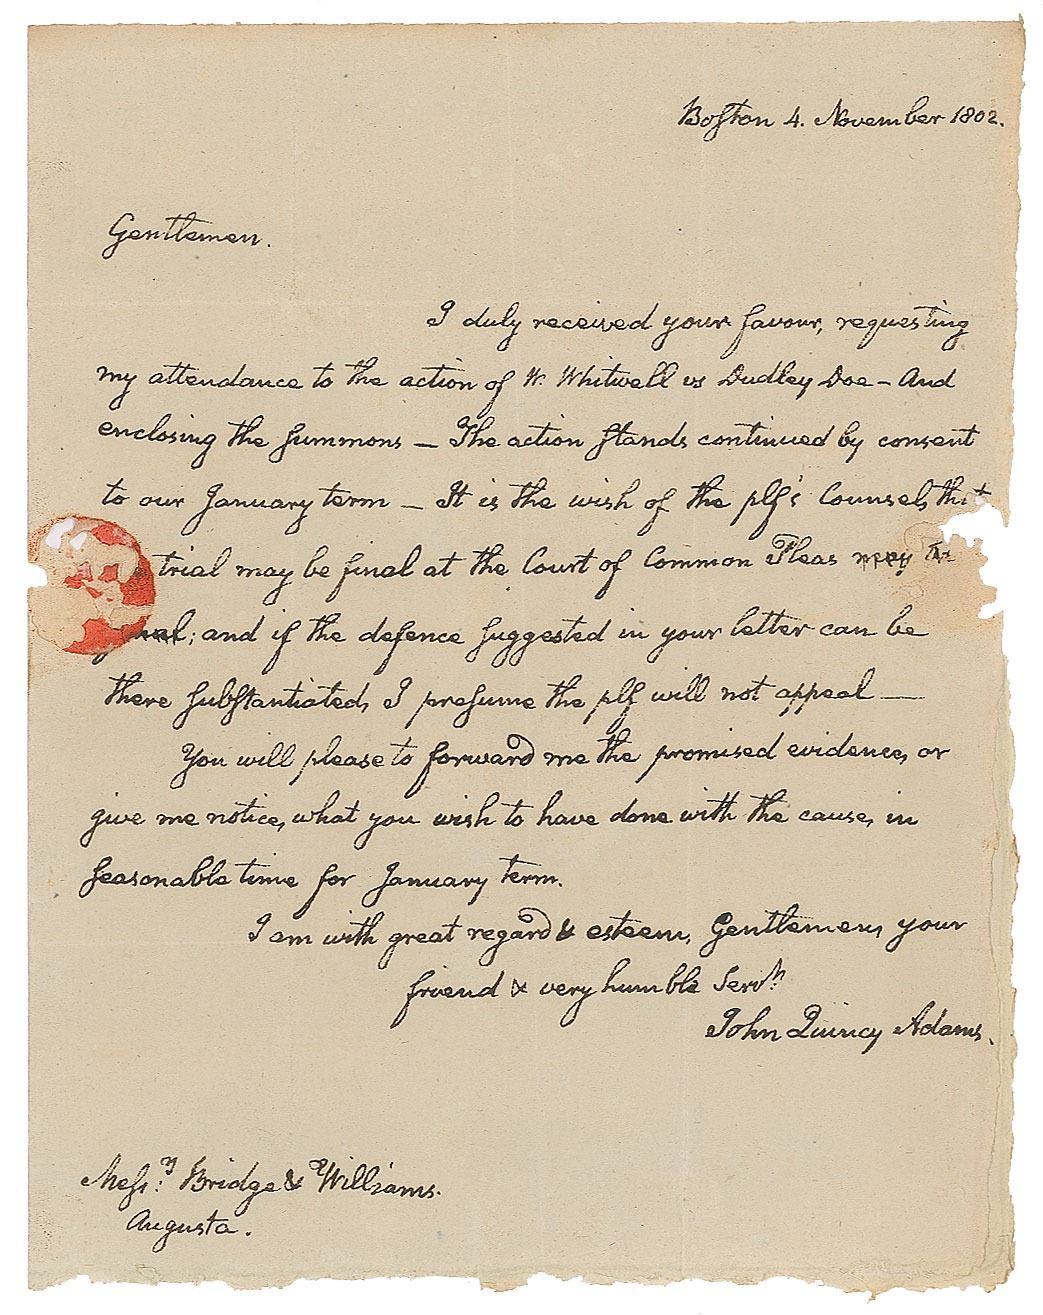 Boſton 4. November 1802.
Gentlemen.
I duly received your favour, requesting
my attendance to the action of W. Whitwell vs Dudley Doe — And
enclosing the ſummons — The action ſtands continued by consent
to our January term — It is the wish of the plf's Counsel, that
trial may be final at the Court of Common Pleas
; and if the defence ſuggested in your letter can be
there ſubſtantiated, I preſume the plf will not appeal —
You will please to forward me the promised evidence, or
give me notice, what you wish to have done with the cause, in
ſeasonable time for January term.
I am with great regard & esteem, Gentlemen, your
friend & very humble Servt.
John Quincy Adams.
Meſsrs. Bridge & Williams.
Augusta.